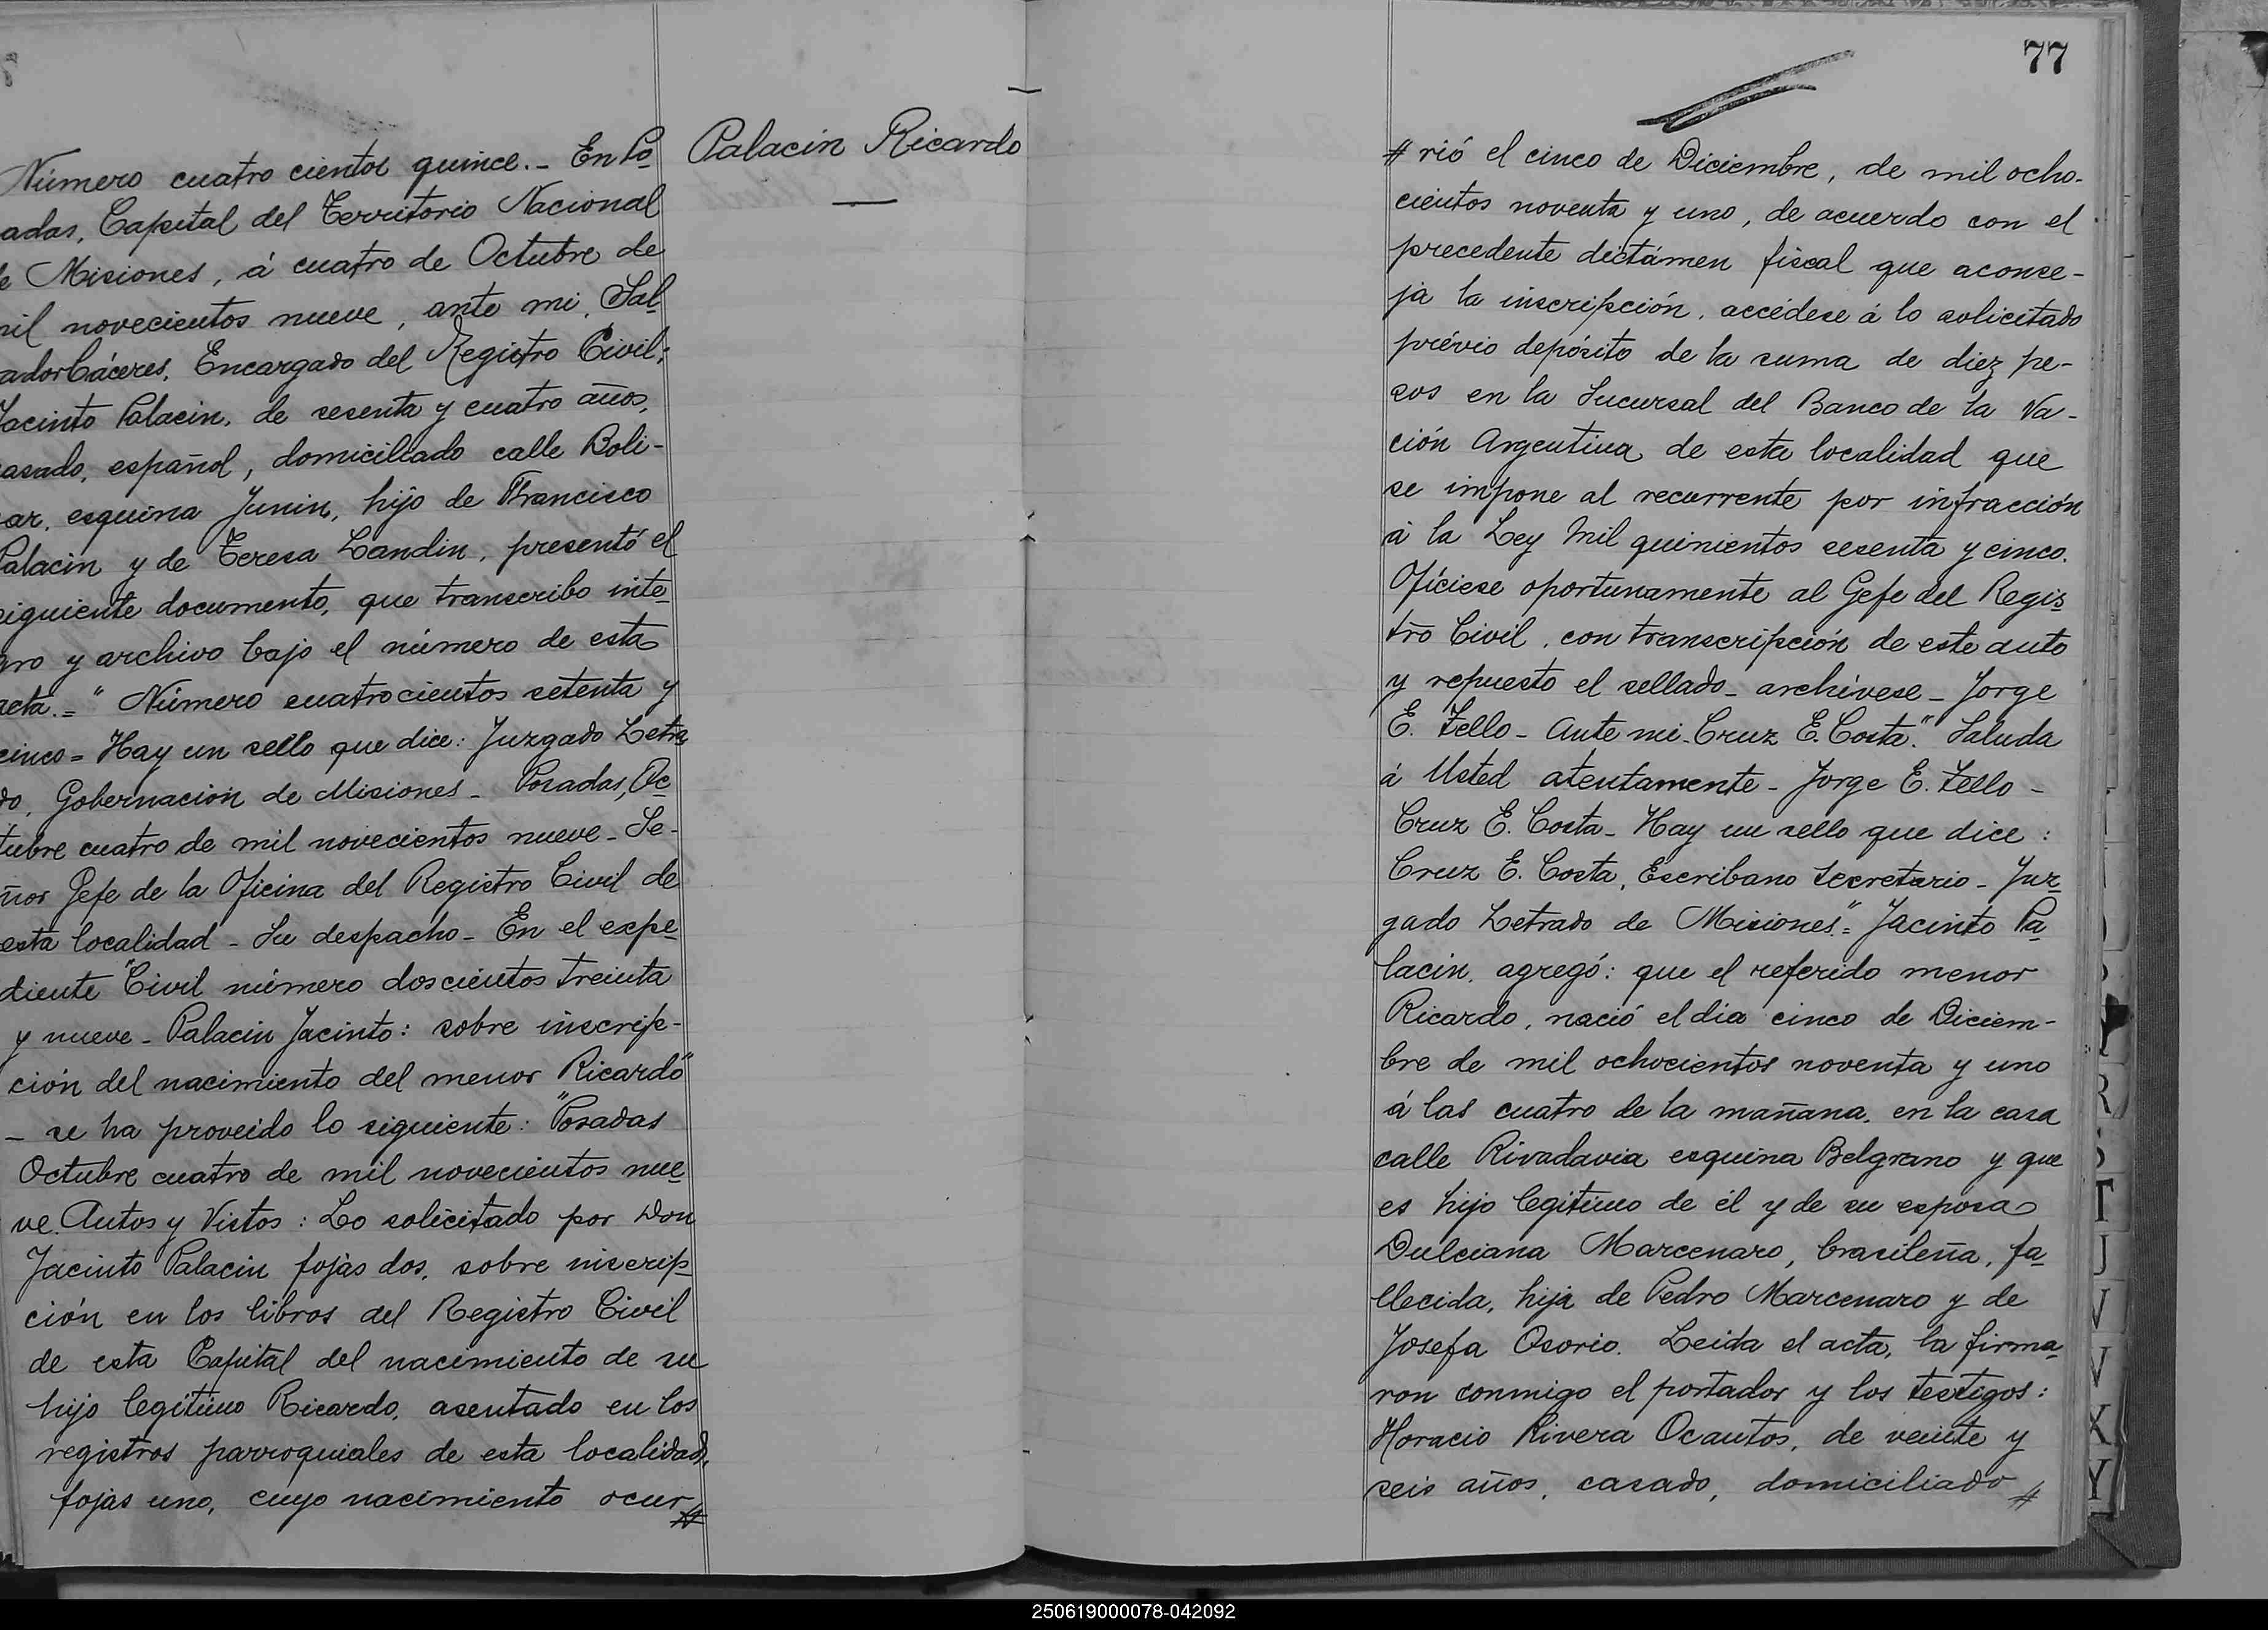 Número cuatro cientos quince.- En Po
adas, Capital del Territorio Nacional
e Misiones, á cuatro de Octubre de
nil novecientos nueve, ante mi, Sal
ador Cáceres, Encargado del Registro Civil;
Jacinto Palacin, de sesenta y cuatro años,
asado, español, domiciliado calle Boli-
ar, esquina Junin, hijo de Francisco
Palacin y de Teresa Landin, presentó el
siguiente documento, que transcribo inte
gro y archivo bajo el número de esta
acta.= "Número cuatrocientos setenta y
cinco= Hay un sello que dice: Juzgado Letra
do, Gobernación de Misiones_ Posadas, Oc
tubre cuatro de mil novecientos nueve_ Se-
ñor Gefe de la Oficina del Registro Civil de
esta localidad_ Su despacho_ En el expe
diente "Civil número doscientos treinta
y nueve_ Palacin Jacinto: sobre inscrip-
ción del nacimiento del menor Ricardo"
_ se ha proveido lo siguiente: "Posadas
Octubre cuatro de mil novecientos nue
ve. Autos y Vistos: Lo solicitado por Don
Jacinto Palacin fojas dos, sobre inscrip
ción en los libros del Registro Civil
de esta Capital del nacimiento de su
hijo legitimo Ricardo, asentado en los
registros parroquiales de esta localidad,
fojas uno, cuyo nacimiento ocur #
Palacin Ricardo
77
# rió el cinco de Diciembre, de mil ocho-
cientos noventa y uno, de acuerdo con el
precedente dictámen fiscal que aconse-
ja la inscripción, accédese á lo solicitado
prévio depósito de la suma de diez pe-
sos en la Sucursal del Banco de la Na-
ción Argentina de esta localidad que
se impone al recurrente por infracción
á la Ley mil quinientos sesenta y cinco.
Ofíciese oportunamente al Gefe del Regis
tro Civil, con transcripción de este auto
y repuesto el sellado_ archívese_ Jorge
E. Zello_ Ante mi_ Cruz E. Costa". Saluda
á Usted atentamente_ Jorge E. Zello_
Cruz E. Costa_ Hay un sello que dice:
Cruz E. Costa, Escribano Secretario_ Juz
gado Letrado de Misiones"= Jacinto Pa
lacin, agregó: que el referido menor
Ricardo, nació el dia cinco de Diciem-
bre de mil ochocientos noventa y uno
á las cuatro de la mañana, en la casa
calle Rivadavia esquina Belgrano y que
es hijo legitimo de él y de su esposa
Dulciana Marcenaro, brasileña, fa
llecida, hija de Pedro Marcenaro y de
Josefa Osorio. Leida el acta, la firma
ron conmigo el portador y los testigos:
Horacio Rivera Ocantos, de veinte y
seis años, casado, domiciliado #
R
S
T
U
V
X
Y
250619000078-042092